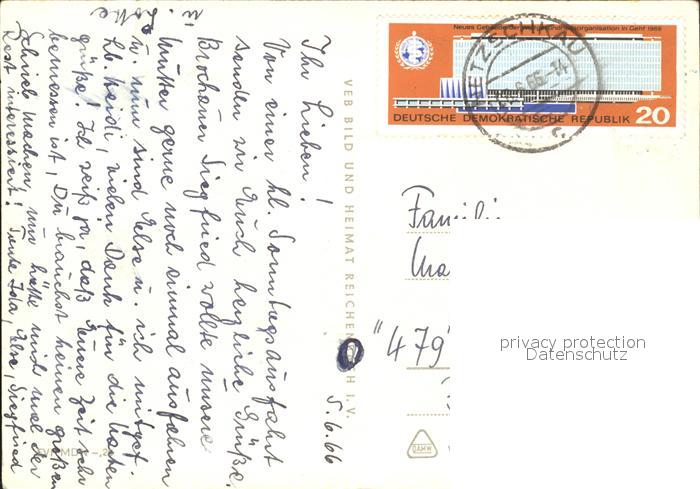 5.6.66
Ihr Lieben!
Von einer kl. Sonntagsausfahrt
senden wir Euch herzliche Grüße.
Brochauer Siegfried wollte unsere
Mutter gerne noch einmal ausfahren
u. nun sind Else u. ich mitgef.
Lb. Heidi, vielen Dank für die Karten
grüße! Ich weiß ja, daß Deine Zeit sehr
bemessen ist, Du brauchst keinen großen
Schrieb machen, nur hätte mich mal der
Rest interessiert! Tante Ida, Else, Siegfried
u.
VEB BILD UND HEIMAT REICHEN H I.V.
Neues Gebäude der Weltgesundheitsorganisation in Genf 1966
DEUTSCHE DEMOKRATISCHE REPUBLIK 20
NETZSCHKAU
Familie
Ma
"479"
privacy protection
Datenschutz
DAMW